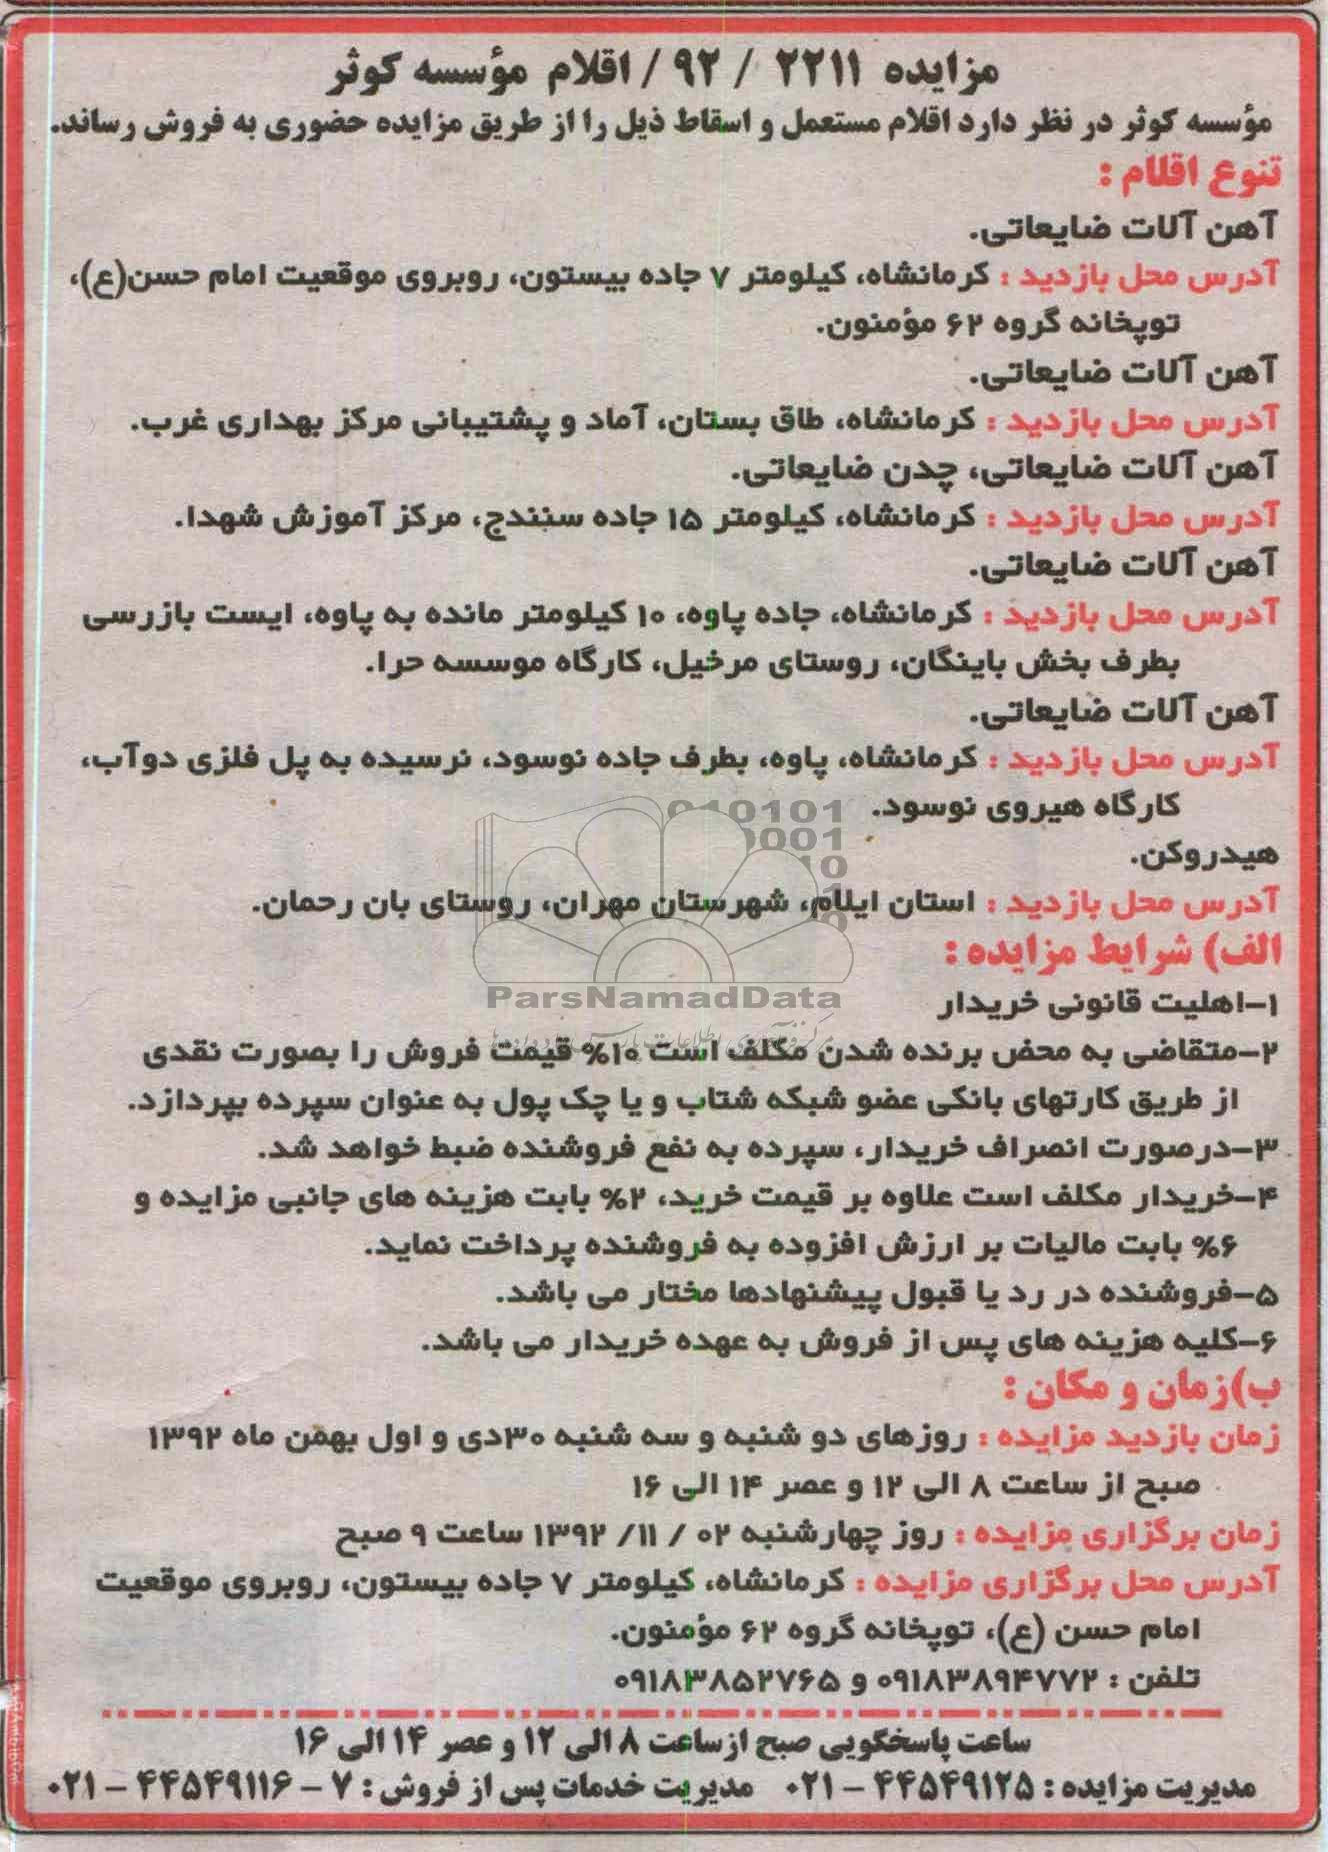 مزایده ۲۲۱۱ / ۹۲ / اقلام مؤسسه کوثر
مؤسسه کوثر در نظر دارد اقلام مستعمل و اسقاط ذیل را از طریق مزایده حضوری به فروش رساند.
تنوع اقلام :
آهن آلات ضایعاتی.
آدرس محل بازدید : کرمانشاه، کیلومتر ۷ جاده بیستون، روبروی موقعیت امام حسن(ع)،
توپخانه گروه ۶۲ مؤمنون.
آهن آلات ضایعاتی.
آدرس محل بازدید : کرمانشاه، طاق بستان، آماد و پشتیبانی مرکز بهداری غرب.
آهن آلات ضایعاتی، چدن ضایعاتی.
آدرس محل بازدید : کرمانشاه، کیلومتر ۱۵ جاده سنندج، مرکز آموزش شهدا.
آهن آلات ضایعاتی.
آدرس محل بازدید : کرمانشاه، جاده پاوه، ۱۰ کیلومتر مانده به پاوه، ایست بازرسی
بطرف بخش باینگان، روستای مرخیل، کارگاه موسسه حرا.
آهن آلات ضایعاتی.
آدرس محل بازدید : کرمانشاه، پاوه، بطرف جاده نوسود، نرسیده به پل فلزی دوآب،
کارگاه هیروی نوسود.
هیدروکن.
آدرس محل بازدید : استان ایلام، شهرستان مهران، روستای بان رحمان.
الف) شرایط مزایده :
ParsNamadData
۱-اهلیت قانونی خریدار
۲-متقاضی به محض برنده شدن مکلف است ۱۰% قیمت فروش را بصورت نقدی
از طریق کارتهای بانکی عضو شبکه شتاب و یا چک پول به عنوان سپرده بپردازد.
۳-درصورت انصراف خریدار، سپرده به نفع فروشنده ضبط خواهد شد.
۴-خریدار مکلف است علاوه بر قیمت خرید، ۲% بابت هزینه های جانبی مزایده و
۶% بابت مالیات بر ارزش افزوده به فروشنده پرداخت نماید.
۵-فروشنده در رد یا قبول پیشنهادها مختار می باشد.
۶-کلیه هزینه های پس از فروش به عهده خریدار می باشد.
ب)زمان و مکان :
زمان بازدید مزایده : روزهای دو شنبه و سه شنبه ۳۰دی و اول بهمن ماه ۱۳۹۲
صبح از ساعت ۸ الی ۱۲ و عصر ۱۴ الی ۱۶
زمان برگزاری مزایده : روز چهارشنبه ۰۲ / ۱۱/ ۱۳۹۲ ساعت ۹ صبح
آدرس محل برگزاری مزایده : کرمانشاه، کیلومتر ۷ جاده بیستون، روبروی موقعیت
امام حسن (ع)، توپخانه گروه ۶۲ مؤمنون.
تلفن : ۰۹۱۸۳۸۹۴۷۷۲ و ۰۹۱۸۳۸۵۲۷۶۵
ساعت پاسخگویی صبح ازساعت ۸ الی ۱۲ و عصر ۱۴ الی ۱۶
مدیریت مزایده : ۴۴۵۴۹۱۲۵ - ۰۲۱ مدیریت خدمات پس از فروش : ۷ - ۴۴۵۴۹۱۱۶ - ۰۲۱